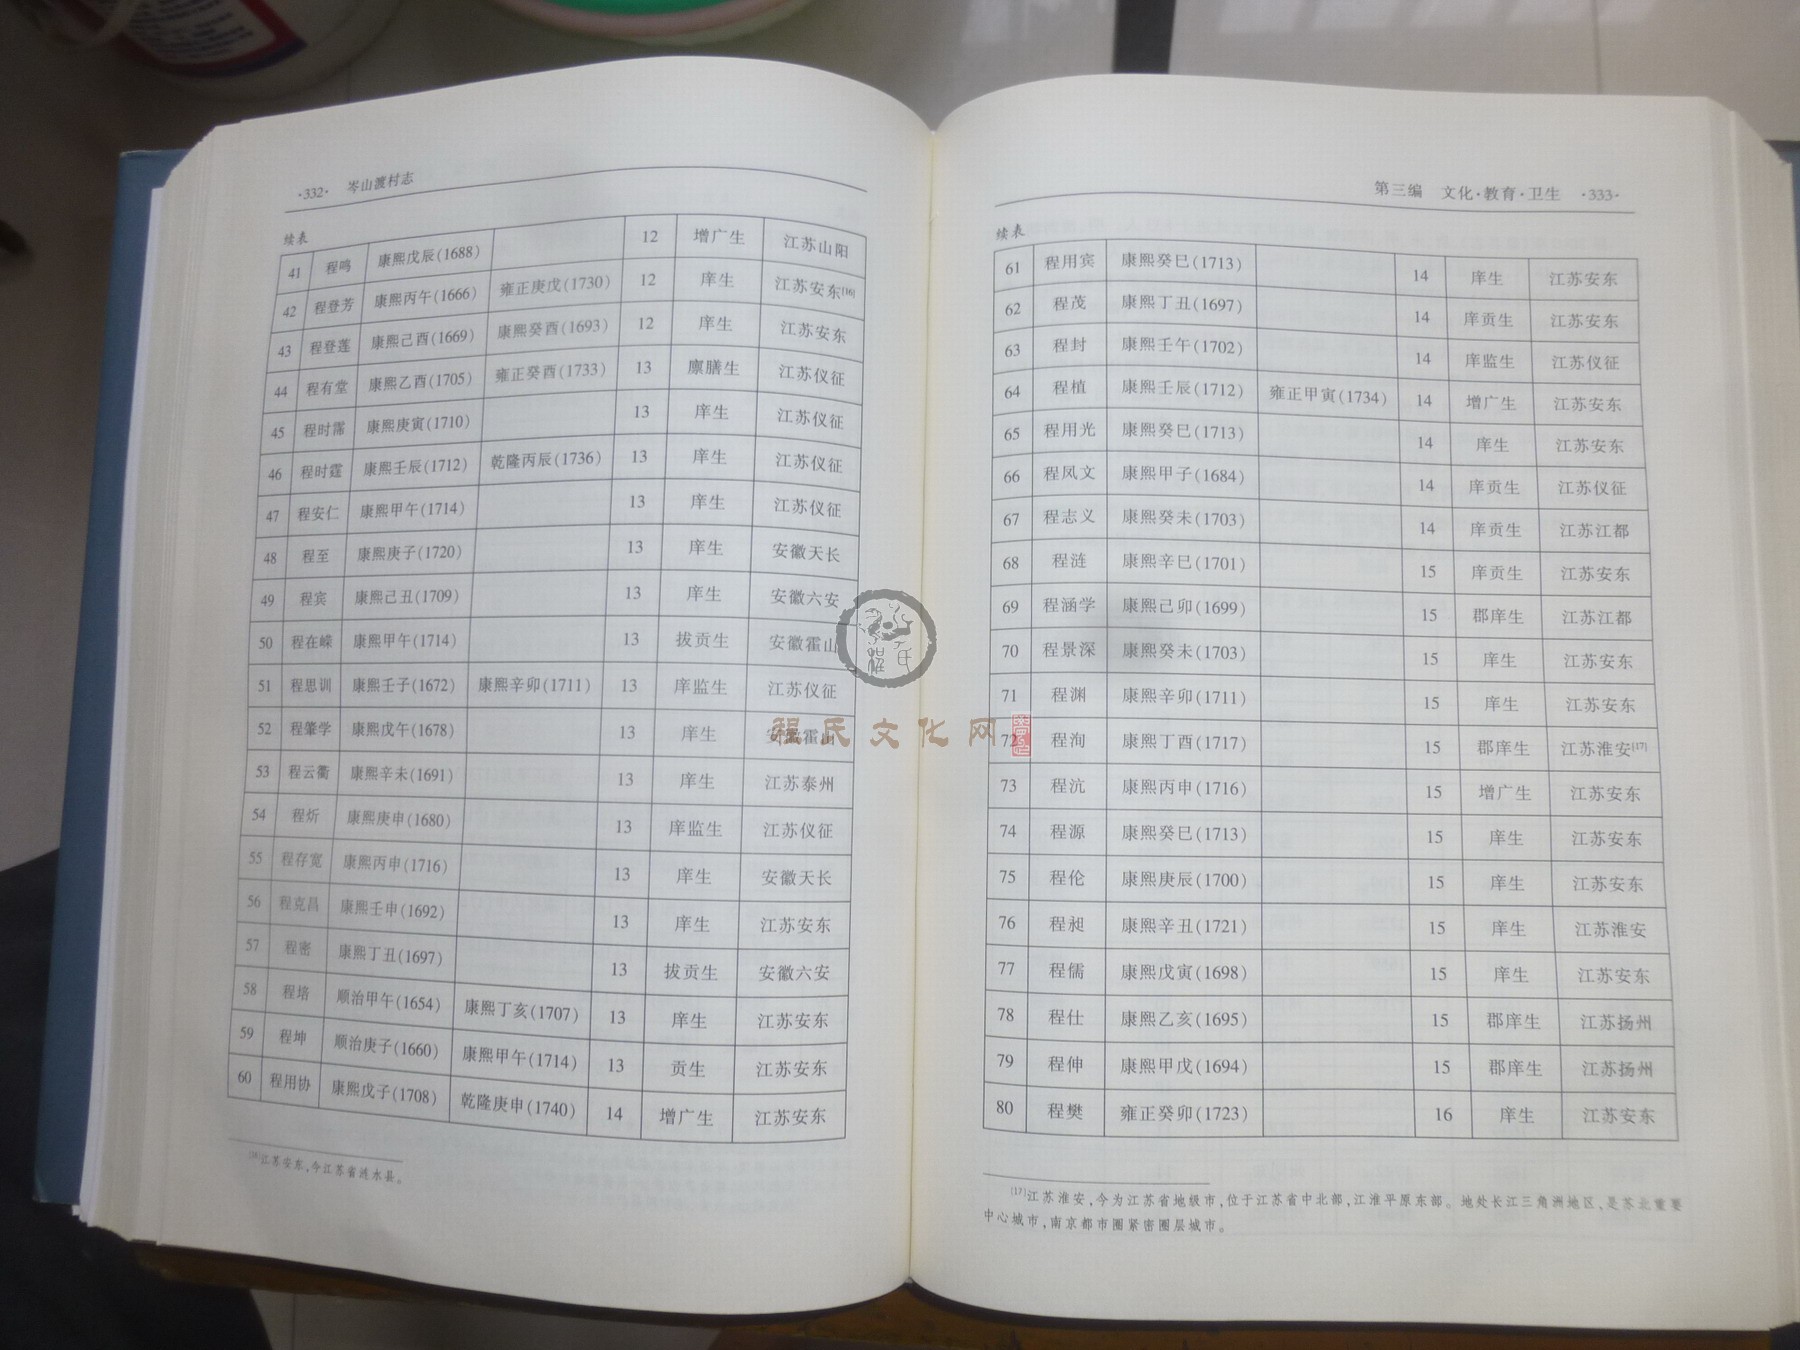 ·332· 岑山渡村志
续表
41 程鸣 康熙戊辰(1688) 12 增广生 江苏山阳
42 程登芳 康熙丙午(1666) 雍正庚戊(1730) 12 庠生 江苏安东[16]
43 程登莲 康熙己酉(1669) 康熙癸酉(1693) 12 庠生 江苏安东
44 程有堂 康熙乙酉(1705) 雍正癸酉(1733) 13 廪膳生 江苏仪征
45 程时霈 康熙庚寅(1710) 13 庠生 江苏仪征
46 程时霆 康熙壬辰(1712) 乾隆丙辰(1736) 13 庠生 江苏仪征
47 程安仁 康熙甲午(1714) 13 庠生 江苏仪征
48 程至 康熙庚子(1720) 13 庠生 安徽天长
49 程宾 康熙己丑(1709) 13 庠生 安徽六安
50 程在嵘 康熙甲午(1714) 13 拔贡生 安徽霍山
51 程思训 康熙壬子(1672) 康熙辛卯(1711) 13 庠监生 江苏仪征
52 程肇学 康熙戊午(1678) 13 庠生 安徽霍山
53 程云衢 康熙辛未(1691) 13 庠生 江苏泰州
54 程炘 康熙庚申(1680) 13 庠监生 江苏仪征
55 程存宽 康熙丙申(1716) 13 庠生 安徽天长
56 程克昌 康熙壬申(1692) 13 庠生 江苏安东
57 程密 康熙丁丑(1697) 13 拔贡生 安徽六安
58 程培 顺治甲午(1654) 康熙丁亥(1707) 13 庠生 江苏安东
59 程坤 顺治庚子(1660) 康熙甲午(1714) 13 贡生 江苏安东
60 程用协 康熙戊子(1708) 乾隆庚申(1740) 14 增广生 江苏安东
[16]江苏安东,今江苏省涟水县。
第三编 文化·教育·卫生 ·333·
续表
61 程用宾 康熙癸巳(1713) 14 庠生 江苏安东
62 程茂 康熙丁丑(1697) 14 庠贡生 江苏安东
63 程封 康熙壬午(1702) 14 庠监生 江苏仪征
64 程植 康熙壬辰(1712) 雍正甲寅(1734) 14 增广生 江苏安东
65 程用光 康熙癸巳(1713) 14 庠生 江苏安东
66 程凤文 康熙甲子(1684) 14 庠贡生 江苏仪征
67 程志义 康熙癸未(1703) 14 庠贡生 江苏江都
68 程涟 康熙辛巳(1701) 15 庠贡生 江苏安东
69 程涵学 康熙己卯(1699) 15 郡庠生 江苏江都
70 程景深 康熙癸未(1703) 15 庠生 江苏安东
71 程渊 康熙辛卯(1711) 15 庠生 江苏安东
72 程洵 康熙丁酉(1717) 15 郡庠生 江苏淮安[17]
73 程沆 康熙丙申(1716) 15 增广生 江苏安东
74 程源 康熙癸巳(1713) 15 庠生 江苏安东
75 程伦 康熙庚辰(1700) 15 庠生 江苏安东
76 程昶 康熙辛丑(1721) 15 庠生 江苏淮安
77 程儒 康熙戊寅(1698) 15 庠生 江苏安东
78 程仕 康熙乙亥(1695) 15 郡庠生 江苏扬州
79 程伸 康熙甲戌(1694) 15 郡庠生 江苏扬州
80 程樊 雍正癸卯(1723) 16 庠生 江苏安东
[17]江苏淮安,今为江苏省地级市,位于江苏省中北部,江淮平原东部。地处长江三角洲地区,是苏北重要
中心城市,南京都市圈紧密圈层城市。
程氏文化网